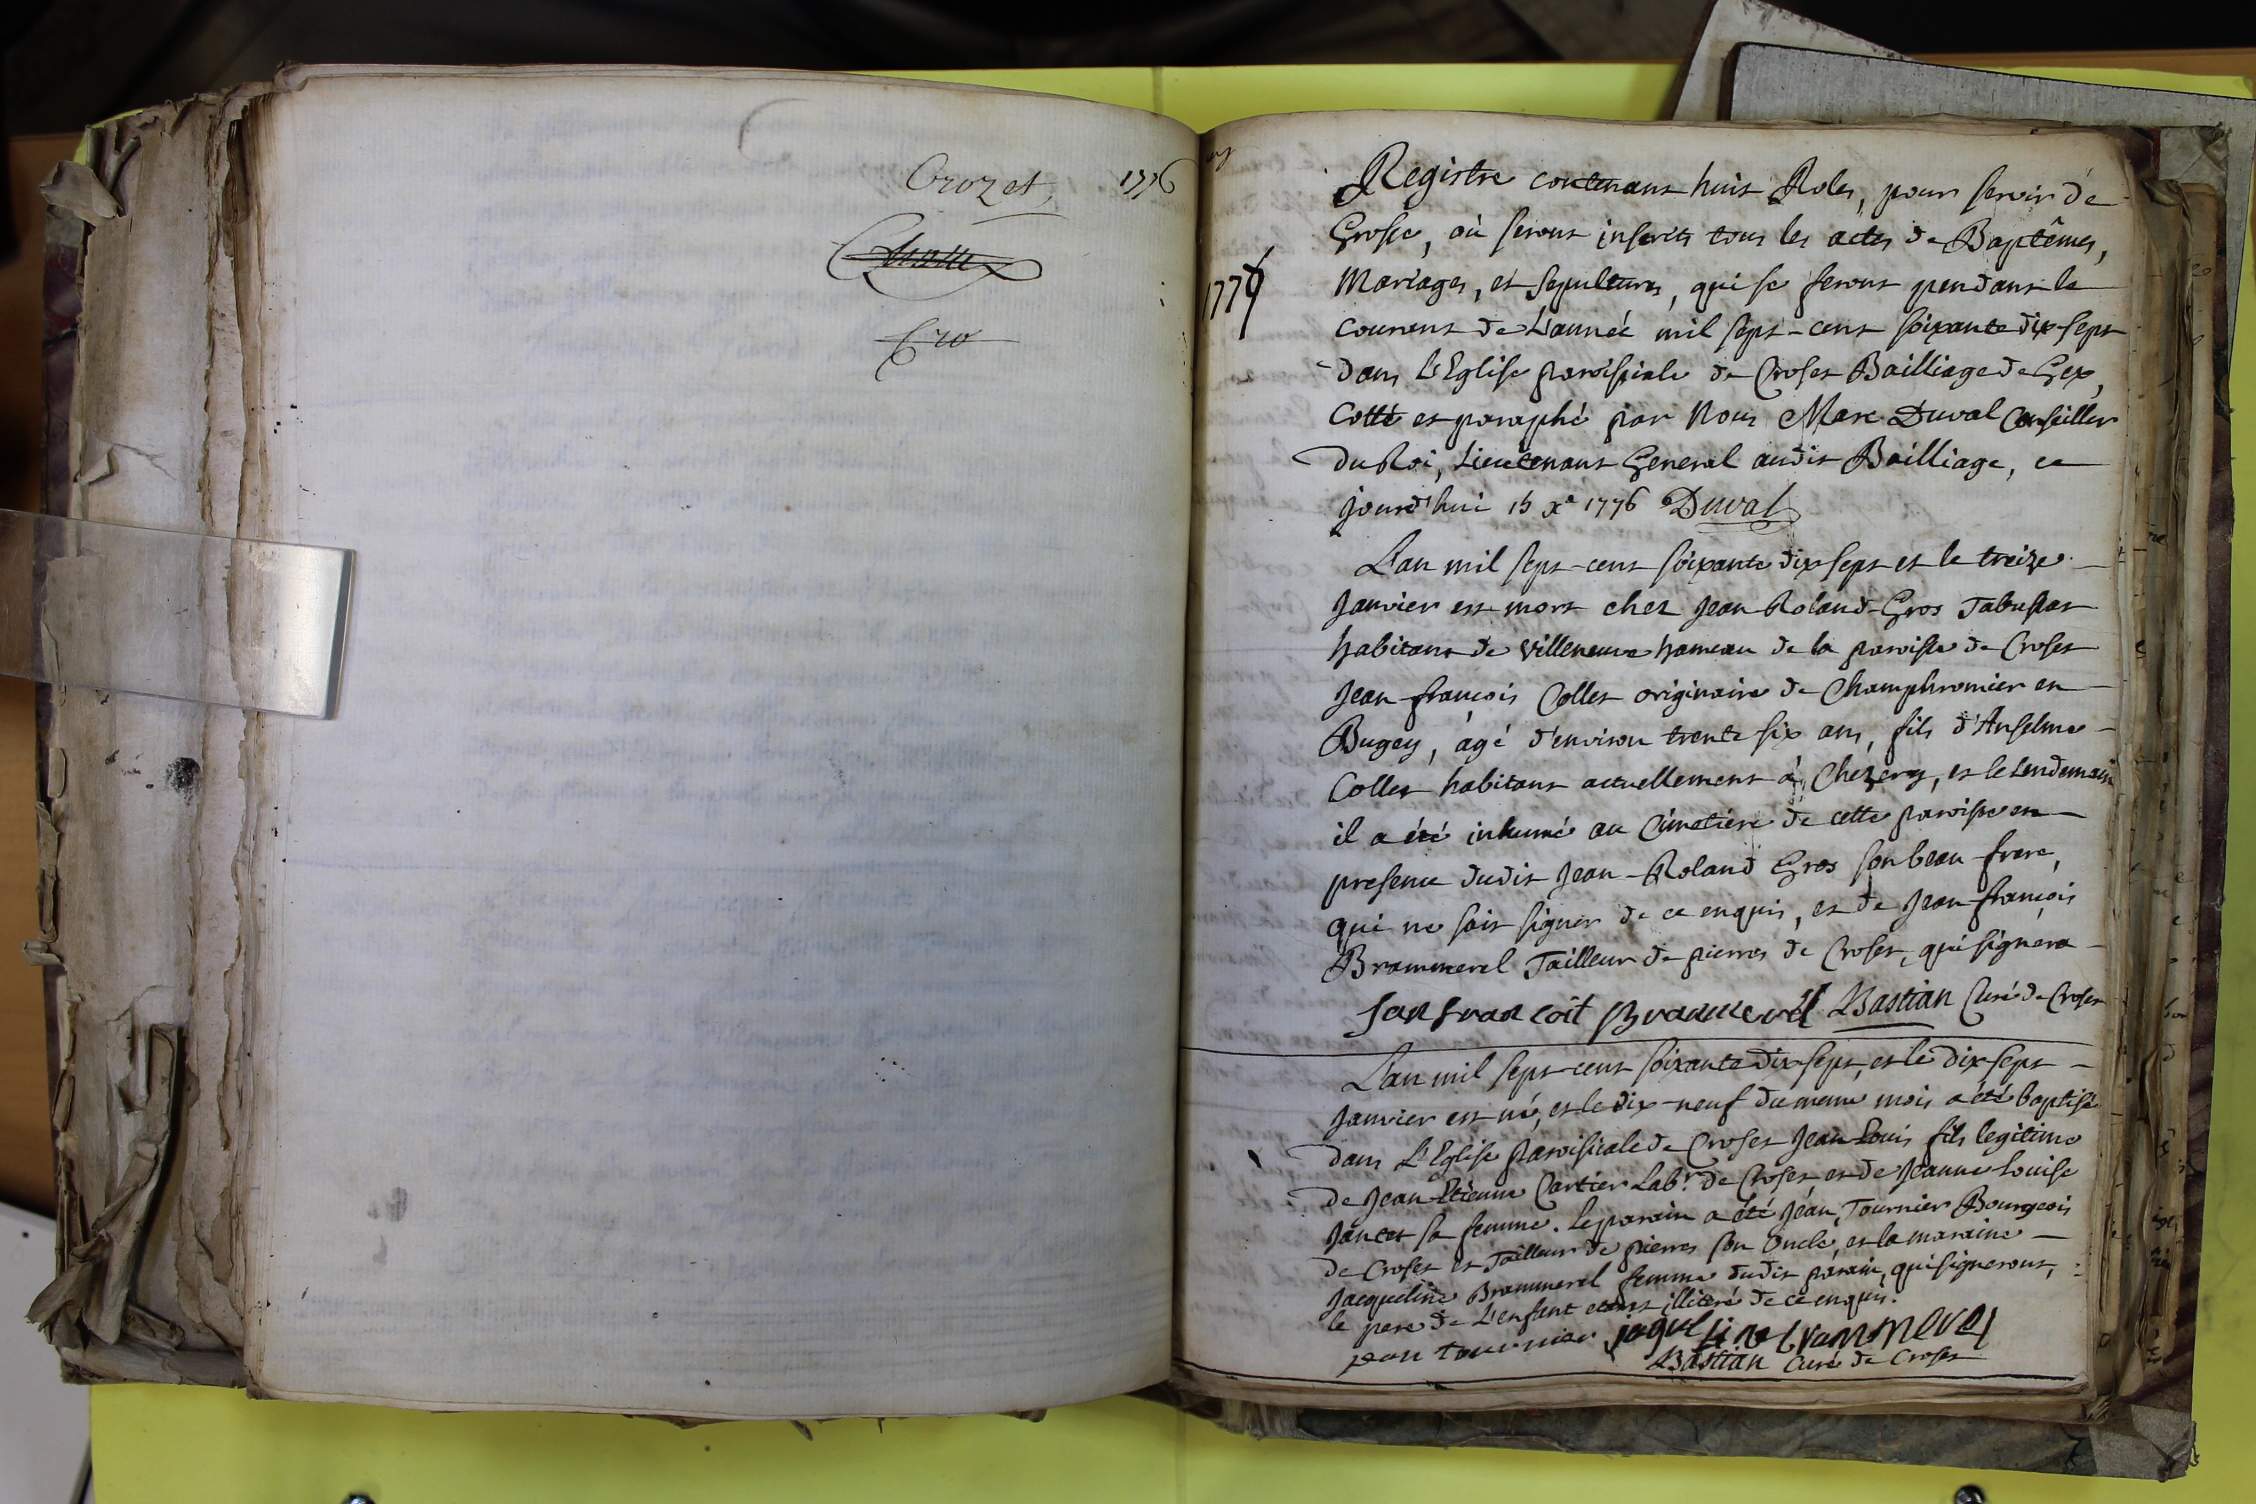 Crozet 1776
Cro
1777
Registre contenant huit Roles, pour servir de
Grosse, où seront inscrits tous les actes de Baptêmes,
Mariages, et sepultures, qui se feront pendant le
courent de L'année mil sept-cent soixante dix-sept
dans L'Eglise paroissiale de Croset Bailliage de Gex,
Cotté et paraphé par Nous Marc Duval Conseiller
du Roi, Lieutenant General audit Bailliage, ce
jourd'hui 15 xe 1776 Duval
L'an mil sept-cent soixante dix sept et le treize
Janvier est mort chez Jean-Roland-Gros Tabussat
habitant de Villeneuve hameau de la paroisse de Croset
Jean-françois Collet originaire de Champhromier en
Bugey, âgé d'environ trente six ans, fils d'Anselme
Collet habitant actuellement à Chezery, et le Lendemain
il a été inhumé au Cimetiére de cette paroisse en
presence dudit Jean-Roland Gros son beau-frere,
qui ne sait signer de ce enquis, et de Jean-françois
Brammerel Tailleur de pierres de Croset, qui signera
Jan francoit Brammerel Bastian Curé de Croset
L'an mil sept-cent soixante dix-sept, et le dix sept
Janvier est né, et le dix-neuf du meme mois a été baptisé
dans L'Eglise paroissiale de Croset Jean-Louis fils legitime
de Jean-Etienne Cartier Labr. de Croset, et de Jeanne Louise
Jancet sa femme. Le parain a été Jean Tournier Bourgeois
de Croset et Tailleur de pierres son Oncle, et la maraine
Jacqueline Brammerel femme dudit parain, qui signeront,
le pere de L'enfant etant illiteré de ce enquis.
jean tournier jaqueline brammerel
Bastian Curé de Croset